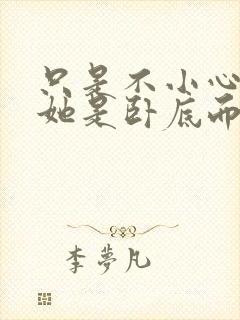 只是不小心
她是卧底而
李夢凡